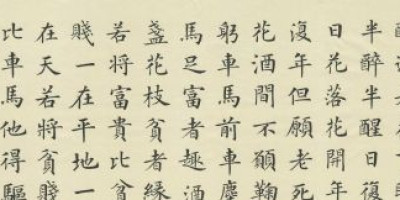 半醉半醒日復
日花落花開年
復年但願老死
花酒間不願鞠
躬車馬前車塵
馬足富者趣酒
盞花枝貧者緣
若将富貴比貧
賤一在平地一
在天若將貧賤
比車馬他得驅